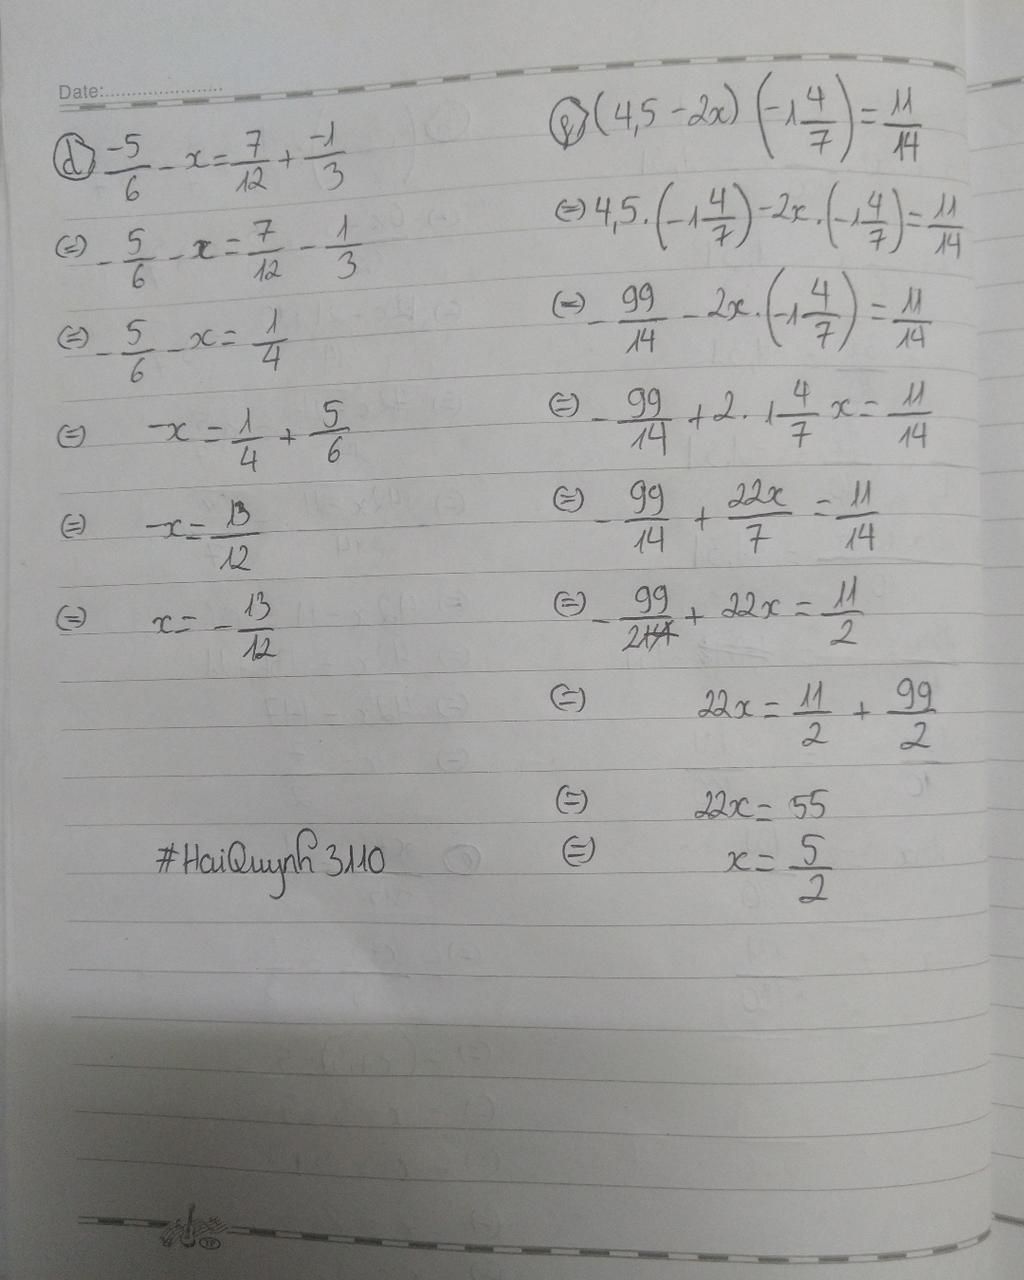 Date:
d) -5/6 - x = 7/12 + -1/3
(=) -5/6 - x = 7/12 - 1/3
(=) -5/6 - x = 1/4
(=) -x = 1/4 + 5/6
(=) -x = 13/12
(=) x = -13/12
#HaiQuynh3110
(4,5 - 2x) (-1 4/7) = 11/14
(=) 4,5 . (-1 4/7) - 2x . (-1 4/7) = 11/14
(=) -99/14 - 2x . (-1 4/7) = 11/14
(=) -99/14 + 2 . 1 4/7 x = 11/14
(=) -99/14 + 22x/7 = 11/14
(=) -99/2 + 22x = 11/2
(=) 22x = 11/2 + 99/2
(=) 22x = 55
(=) x = 5/2